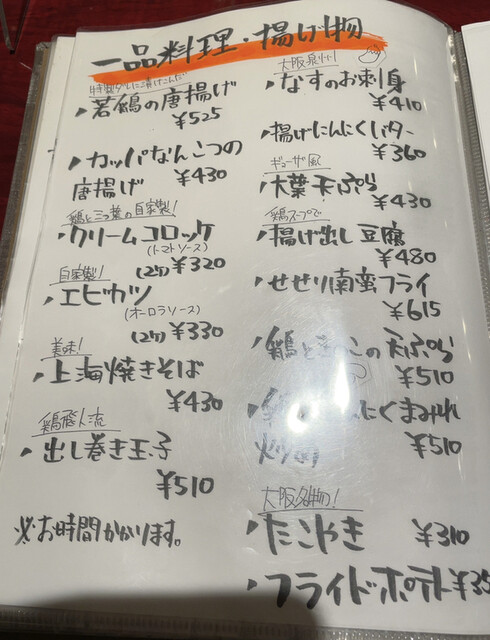 一品料理・揚げ物
特製ダレに漬けこんだ
・若鶏の唐揚げ
¥525
・カッパなんこつの
唐揚げ ¥430
鶏と三つ葉の自家製!
・クリームコロッケ
(トマトソース)
(2ケ) ¥320
自家製!
・エビカツ
(オーロラソース)
(2ケ) ¥330
美味!
・上海焼きそば
¥430
鶏飛人流
・出し巻き玉子
¥510
※お時間かかります。
大阪泉州!
・なすのお刺身
¥410
・揚げにんにくバター
¥360
ギョーザ風
・大葉天ぷら
¥430
鶏スープで
・揚げ出し豆腐
¥480
・せせり南蛮フライ
¥615
・鶏ときのこの天ぷら
¥510
にくまみれ
¥510
大阪名物!
・たこやき ¥310
・フライドポテト ¥35